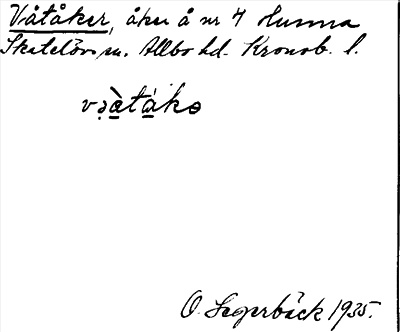 Våtåker, åker å nr 4 Hunna
Skatelövs sn. Allbo hd. Kronob. l.
O. Segerbäck 1935.